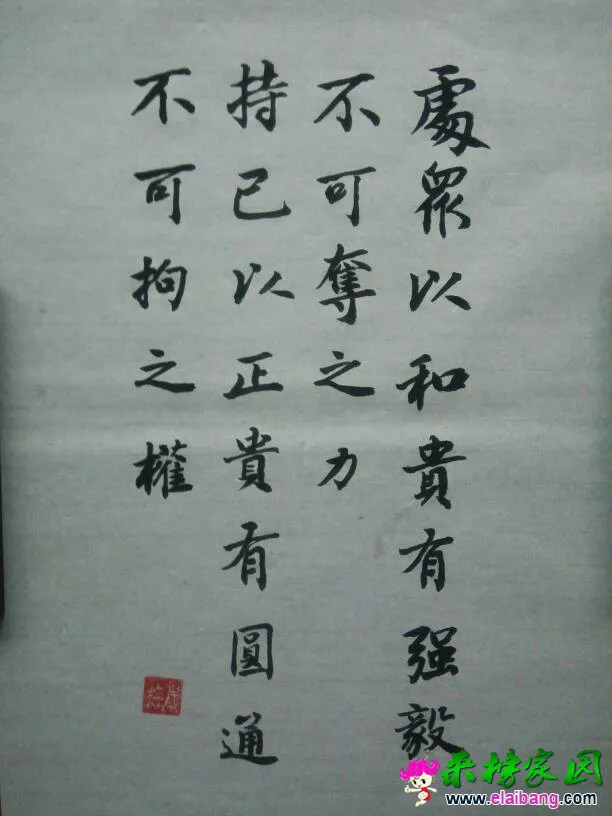 處眾以和貴有强毅
不可奪之力
持已以正貴有圓通
不可拘之權
来榜家园
www.elaibang.com